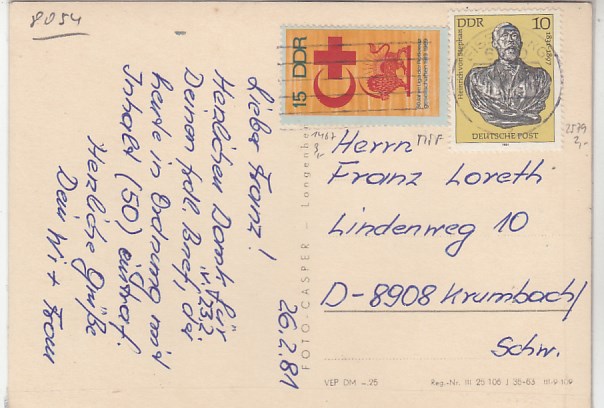 8054
Lieber Franz!
Herzlichen Dank für
Deinen frdl. Brief, der
heute in Ordnung mit
Inhalt (50) eintraf.
Herzliche Grüße
Dein Wi + Frau
26.2.81
15 DDR
DDR 10
Heinrich von Stephan
1831-1897
DEUTSCHE POST
1467
3,-
2579
2,-
Herrn
Franz Loreth
Lindenweg 10
D-8908 Krumbach/
Schw.
FOTO-CASPER - Langenber
VEP DM -.25
Reg.-Nr. III 26 106 J 36-63 III-9-109